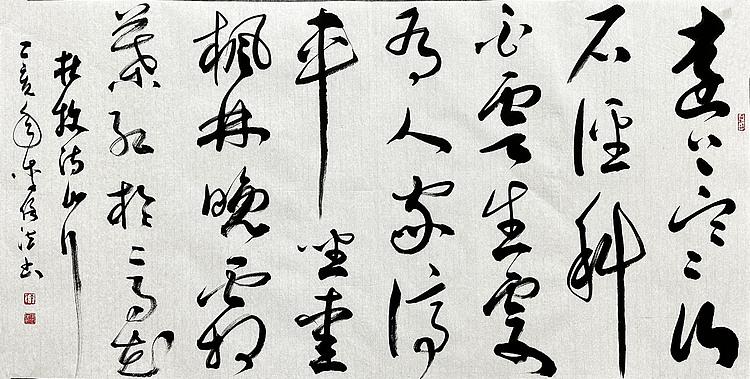 遠上寒山
石徑斜
白雲生處
有人家停
車坐愛
楓林晚霜
葉紅於二月花
杜牧詩山行
亥年書